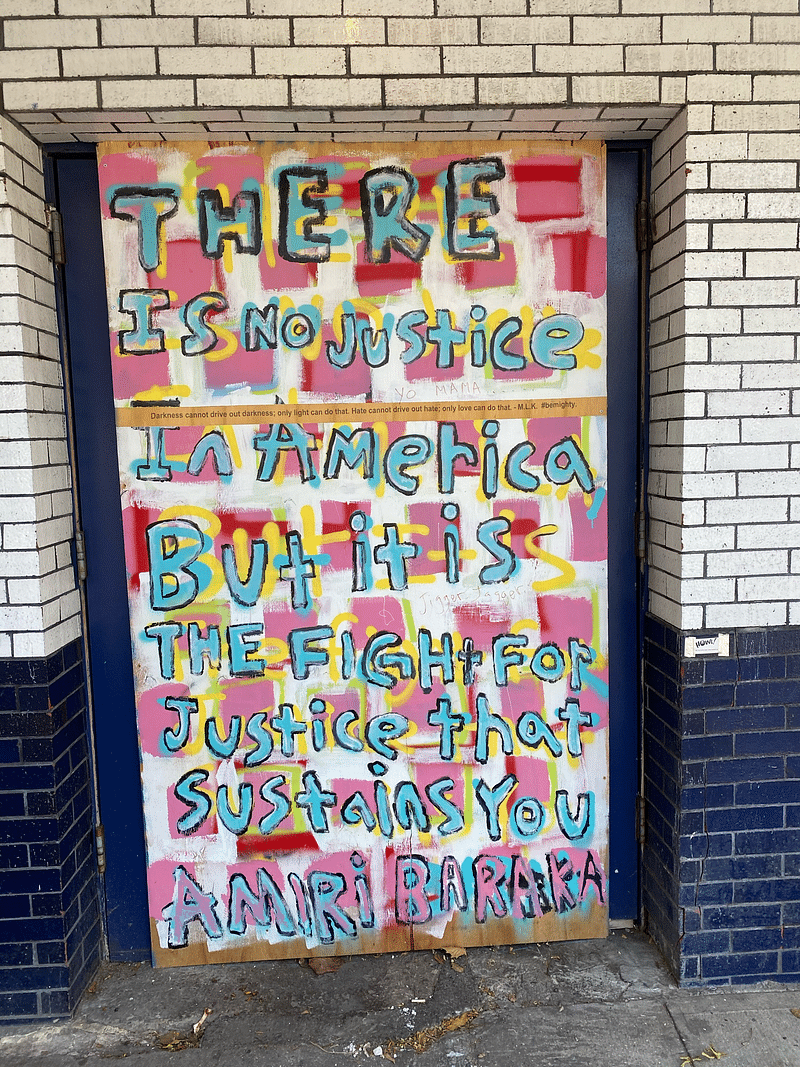 THERE
IS NO JUSTICE
YO MAMA...
Darkness cannot drive out darkness; only light can do that. Hate cannot drive out hate; only love can do that. - M.L.K. #bemighty.
In America,
But it is
THE FIGHt FOr
Justice that
sustains YOU
AMIRi BARAKA
HOWL!